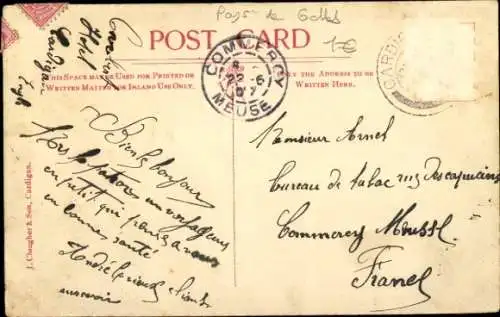 Pays de Galles
1€
POST CARD
THIS SPACE MAY BE USED FOR PRINTED OR
WRITTEN MATTER FOR INLAND USE ONLY.
THE ADDRESS TO BE
WRITTEN HERE.
COMMERCY
22-6
07
MEUSE
CARDIG
Hotel
Cardigan
J. Clougher & Son, Cardigan.
Bien le bonjour
un voyageur
en petit qui pense a vous
en bonne santé
André
au revoir
Monsieur
bureau de tabac rue des capucins
Commercy Meuse
France